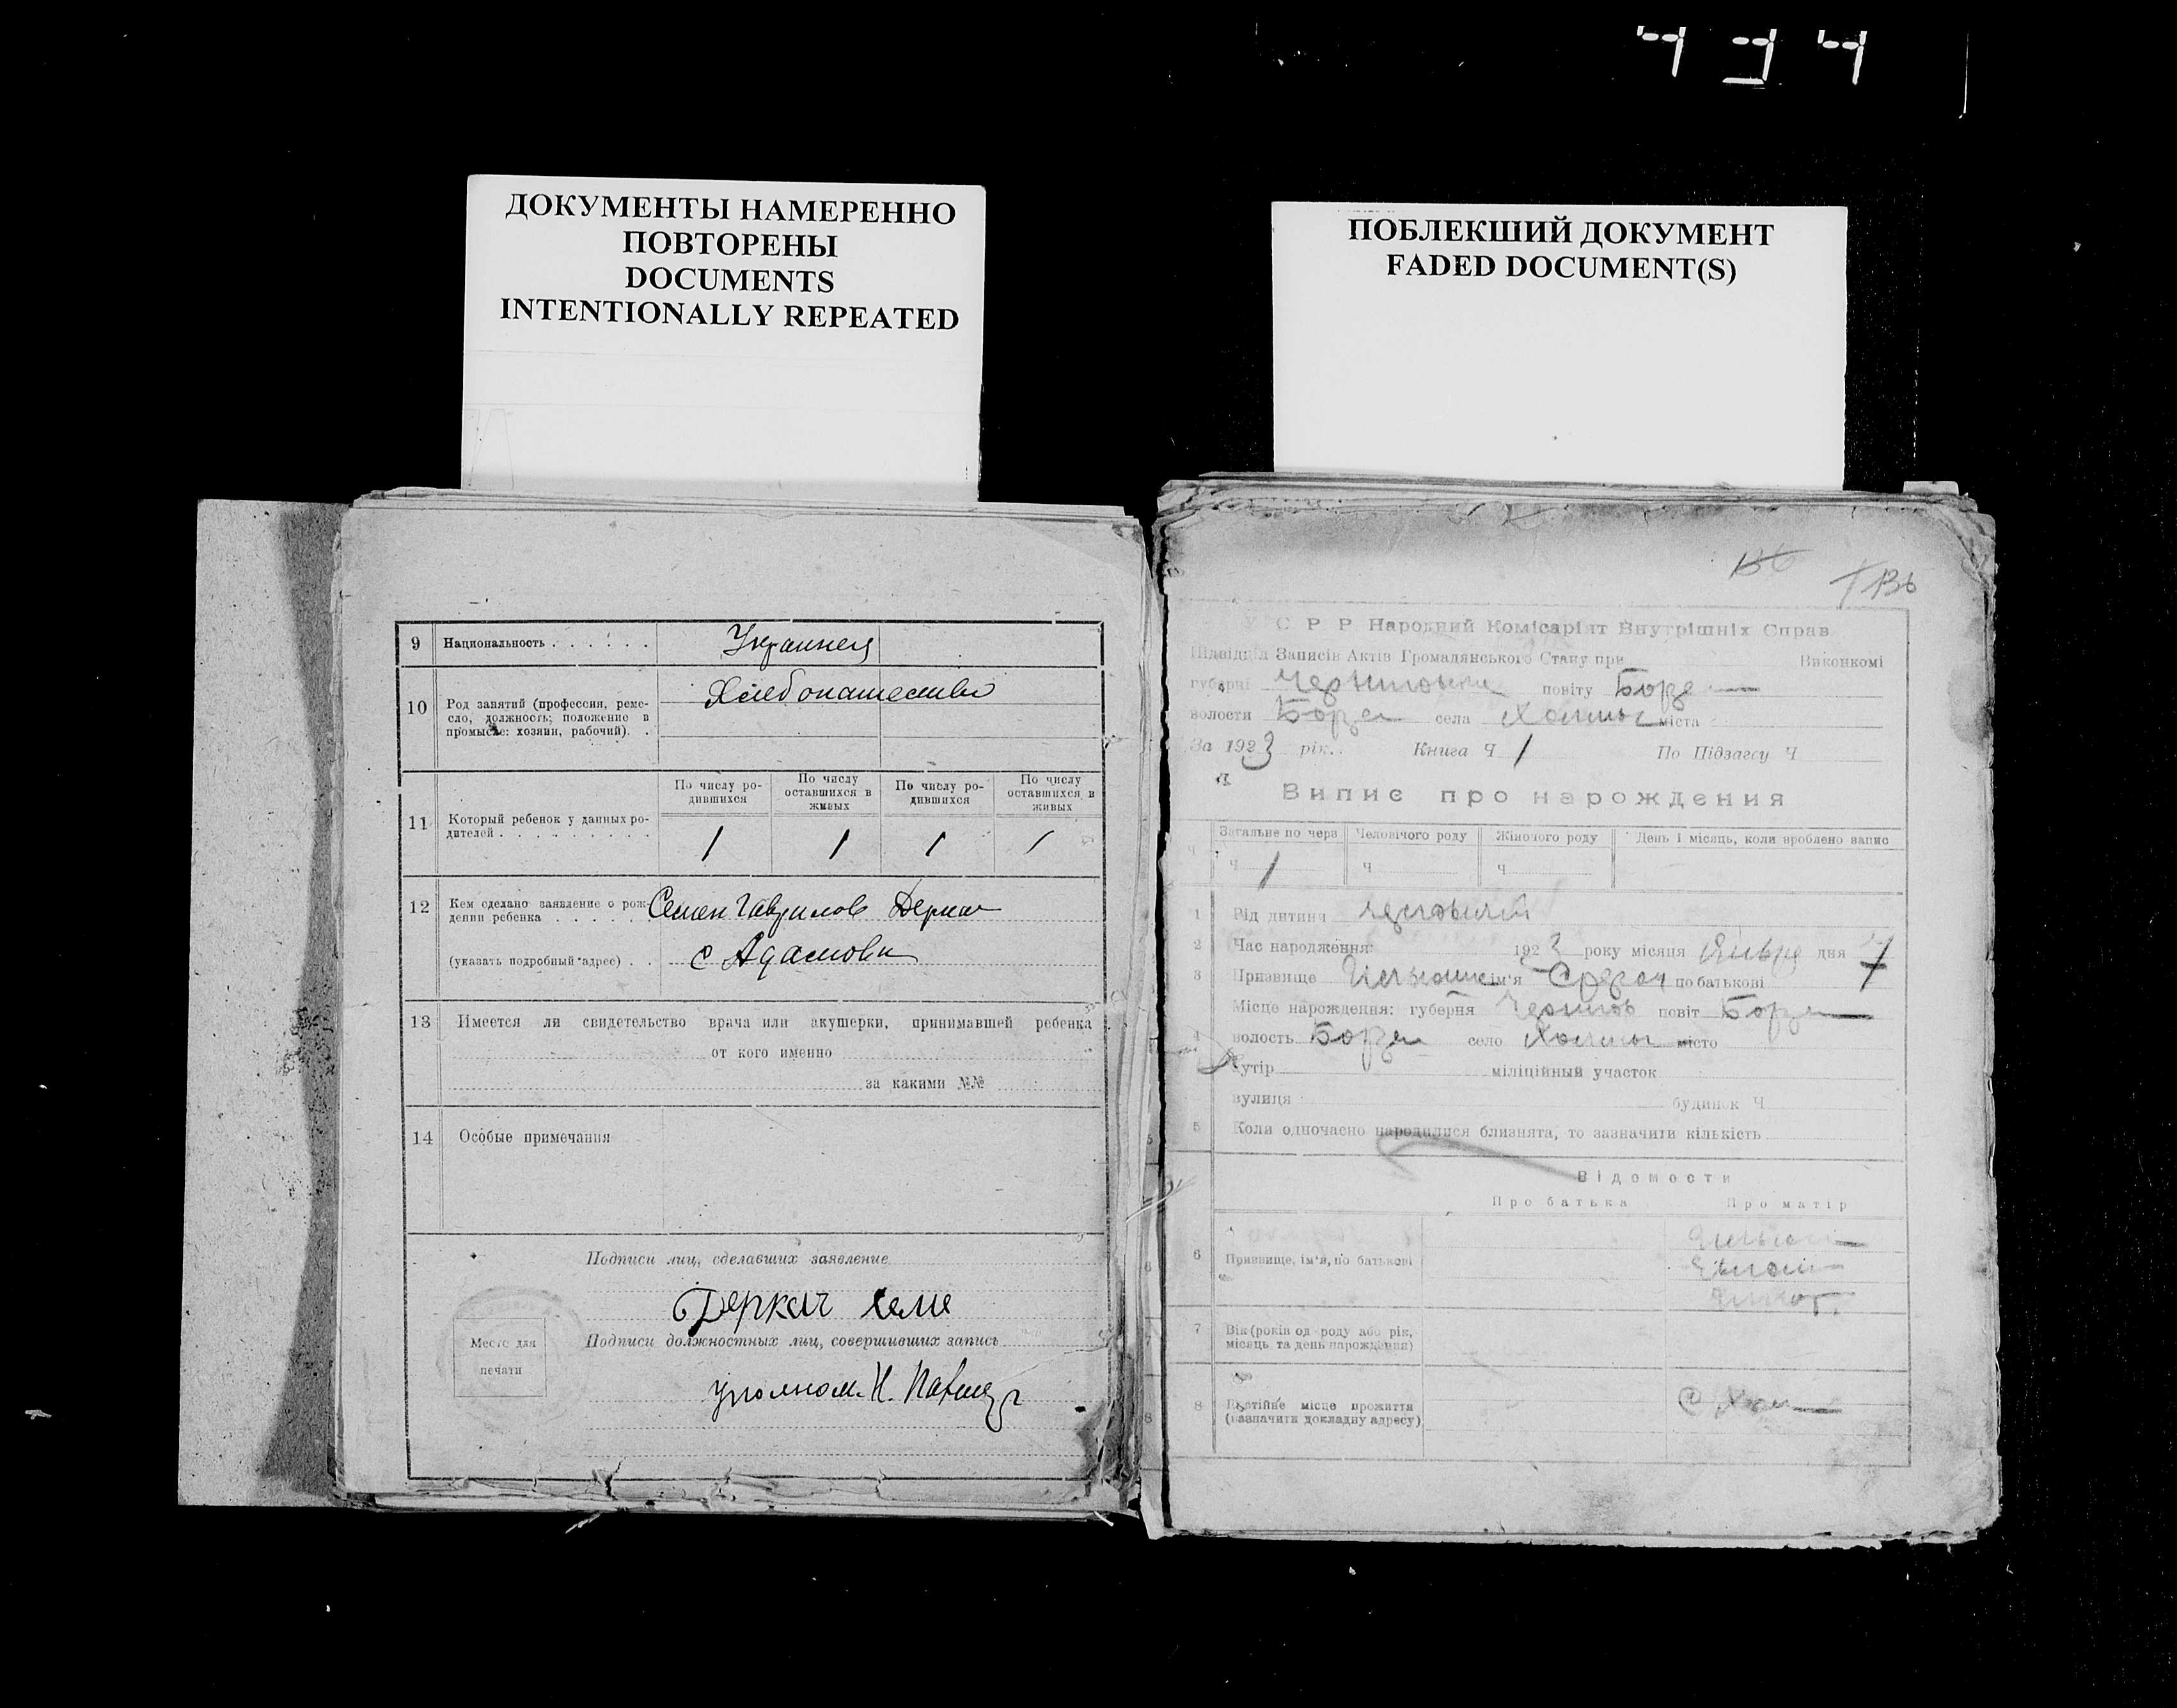 494
ДОКУМЕНТЫ НАМЕРЕННО
ПОВТОРЕНЫ
DOCUMENTS
INTENTIONALLY REPEATED
9 Национальность . . . . . .
10 Род занятий (профессия, реме-
сло, должность; положение в
промысле: хозяин, рабочий). .
11 Который ребенок у данных ро-
дителей . . . . . . . . .
По числу ро-
дившихся
По числу
оставшихся в
живых
По числу ро-
дившихся
По числу
оставшихся в
живых
1 1 1 1
12 Кем сделано заявление о рож-
дении ребенка . . . . . Семен Гаврилов Деркач
(указать подробный адрес) . . с Адамовк
13 Имеется ли свидетельство врача или акушерки, принимавшей ребенка
от кого именно
за какими №№
14 Особые примечания
Подписи лиц, сделавших заявление
Деркач Семе
Подписи должностных лиц, совершивших запись
Место для
печати
уполном. Н.
ПОБЛЕКШИЙ ДОКУМЕНТ
FADED DOCUMENT(S)
136
136
У С Р Р Народний Комісаріят Внутрішніх Справ
Підвідділ Записів Актів Громадянського Стану при Виконкомі
губерні повіту Борзен
волости Борзен села Холмы міста
За 1923 рік. Книга Ч 1 По Підзагсу Ч
Випис про нарождения
Загальне по черз Человічого роду Жіночого роду День і місяць, коли вроблено запис
Ч 1 Ч Ч
1 Рід дитини
2 Час народження: 1923 року місяця Января дня 7
3 Призвище ім'я по батькові
Місце нарождення: губерня Чернигов повіт Борзен
4 волость Борзен село Холмы місто
хутір міліційный участок
вулиця будинок Ч
5 Коли одночасно народилися близнята, то зазначити кількість
Відомости
Про батька Про матір
6 Призвище, ім'я, по батькові
7 Вік (років од роду або рік,
місяць та день нарождення)
8 Постійне місце прожиття
(зазначити докладну адресу)
с Хол